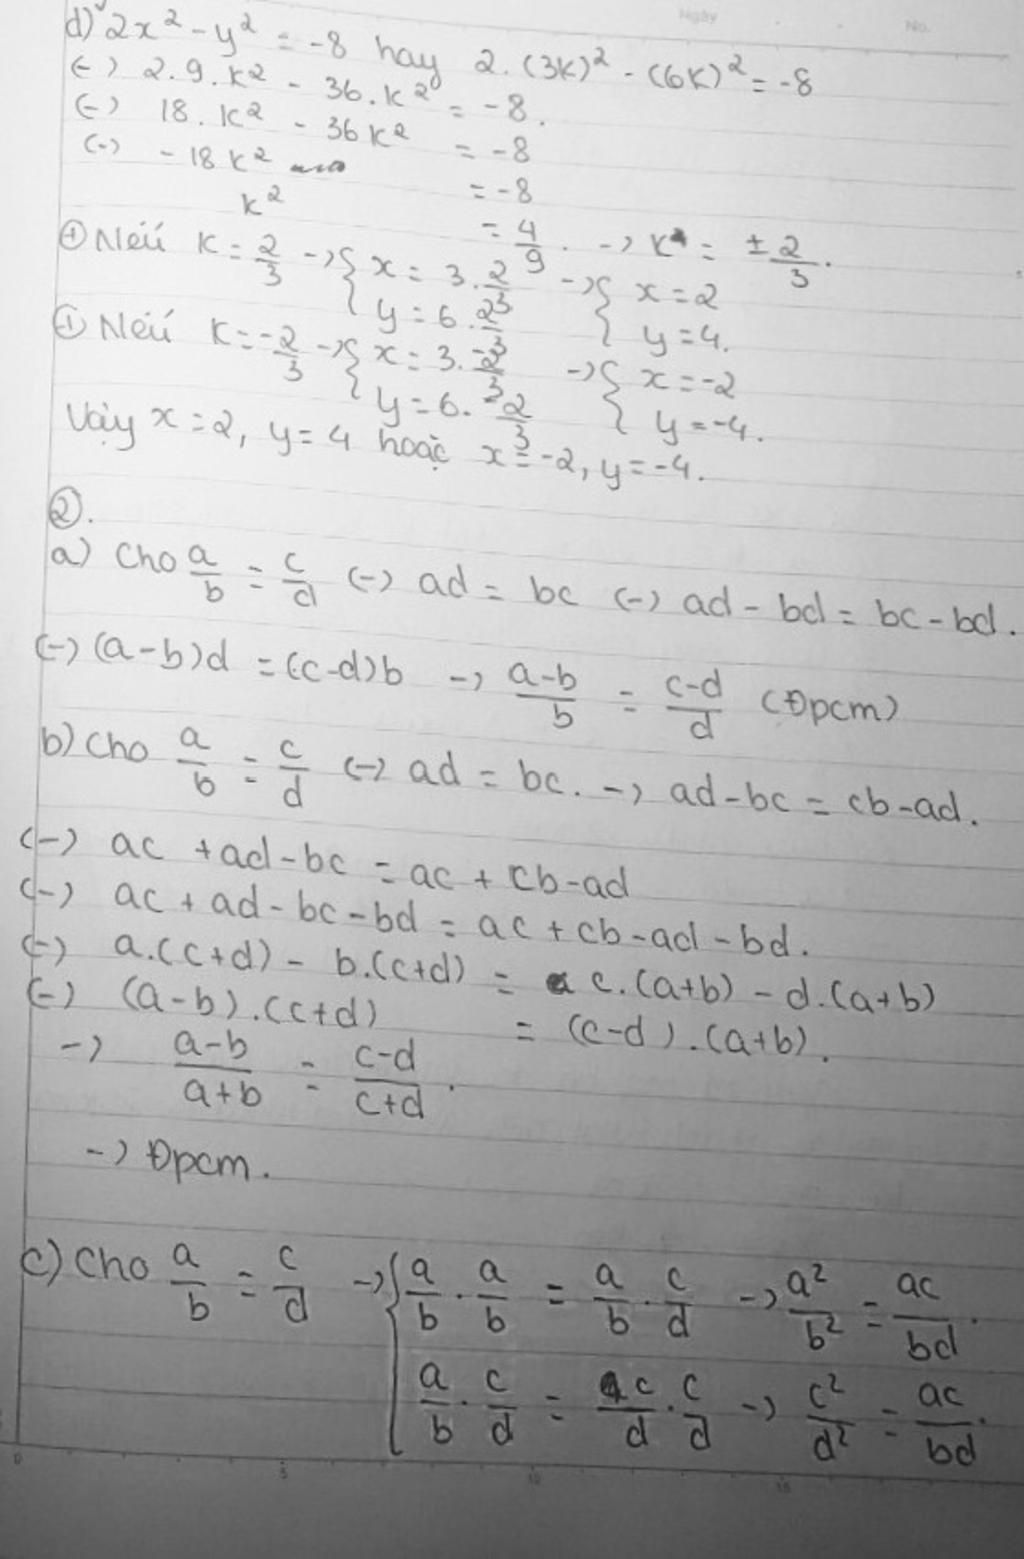 Ngày No.
d) 2x² - y² = -8 hay 2.(3k)² - (6k)² = -8
(-) 2.9.k² - 36.k² = -8.
(-) 18.k² - 36k² = -8
(-) -18k² = -8
k² = 4/9. -> k = ± 2/3.
⊕ Nếú k = 2/3 -> { x = 3.2/3 -> { x = 2
y = 6.2/3 y = 4.
⊕ Nếú k = -2/3 -> { x = 3.-2/3 -> { x = -2
y = 6.-2/3 y = -4.
Vậy x = 2, y = 4 hoặc x = -2, y = -4.
②.
a) Cho a/b = c/d (-) ad = bc (-) ad - bd = bc - bd.
(-) (a-b)d = (c-d)b -> a-b/b = c-d/d (Đpcm)
b) Cho a/b = c/d (-) ad = bc. -> ad - bc = cb - ad.
(-) ac + ad - bc = ac + cb - ad
(-) ac + ad - bc - bd = ac + cb - ad - bd.
(-) a.(c+d) - b.(c+d) = c.(a+b) - d.(a+b)
(-) (a-b).(c+d) = (c-d).(a+b).
-> a-b/a+b = c-d/c+d.
-> Đpcm.
c) Cho a/b = c/d -> { a/b . a/b = a/b . c/d -> a²/b² = ac/bd.
a/b . c/d = c/d . c/d -> c²/d² = ac/bd.
0 5 10 15